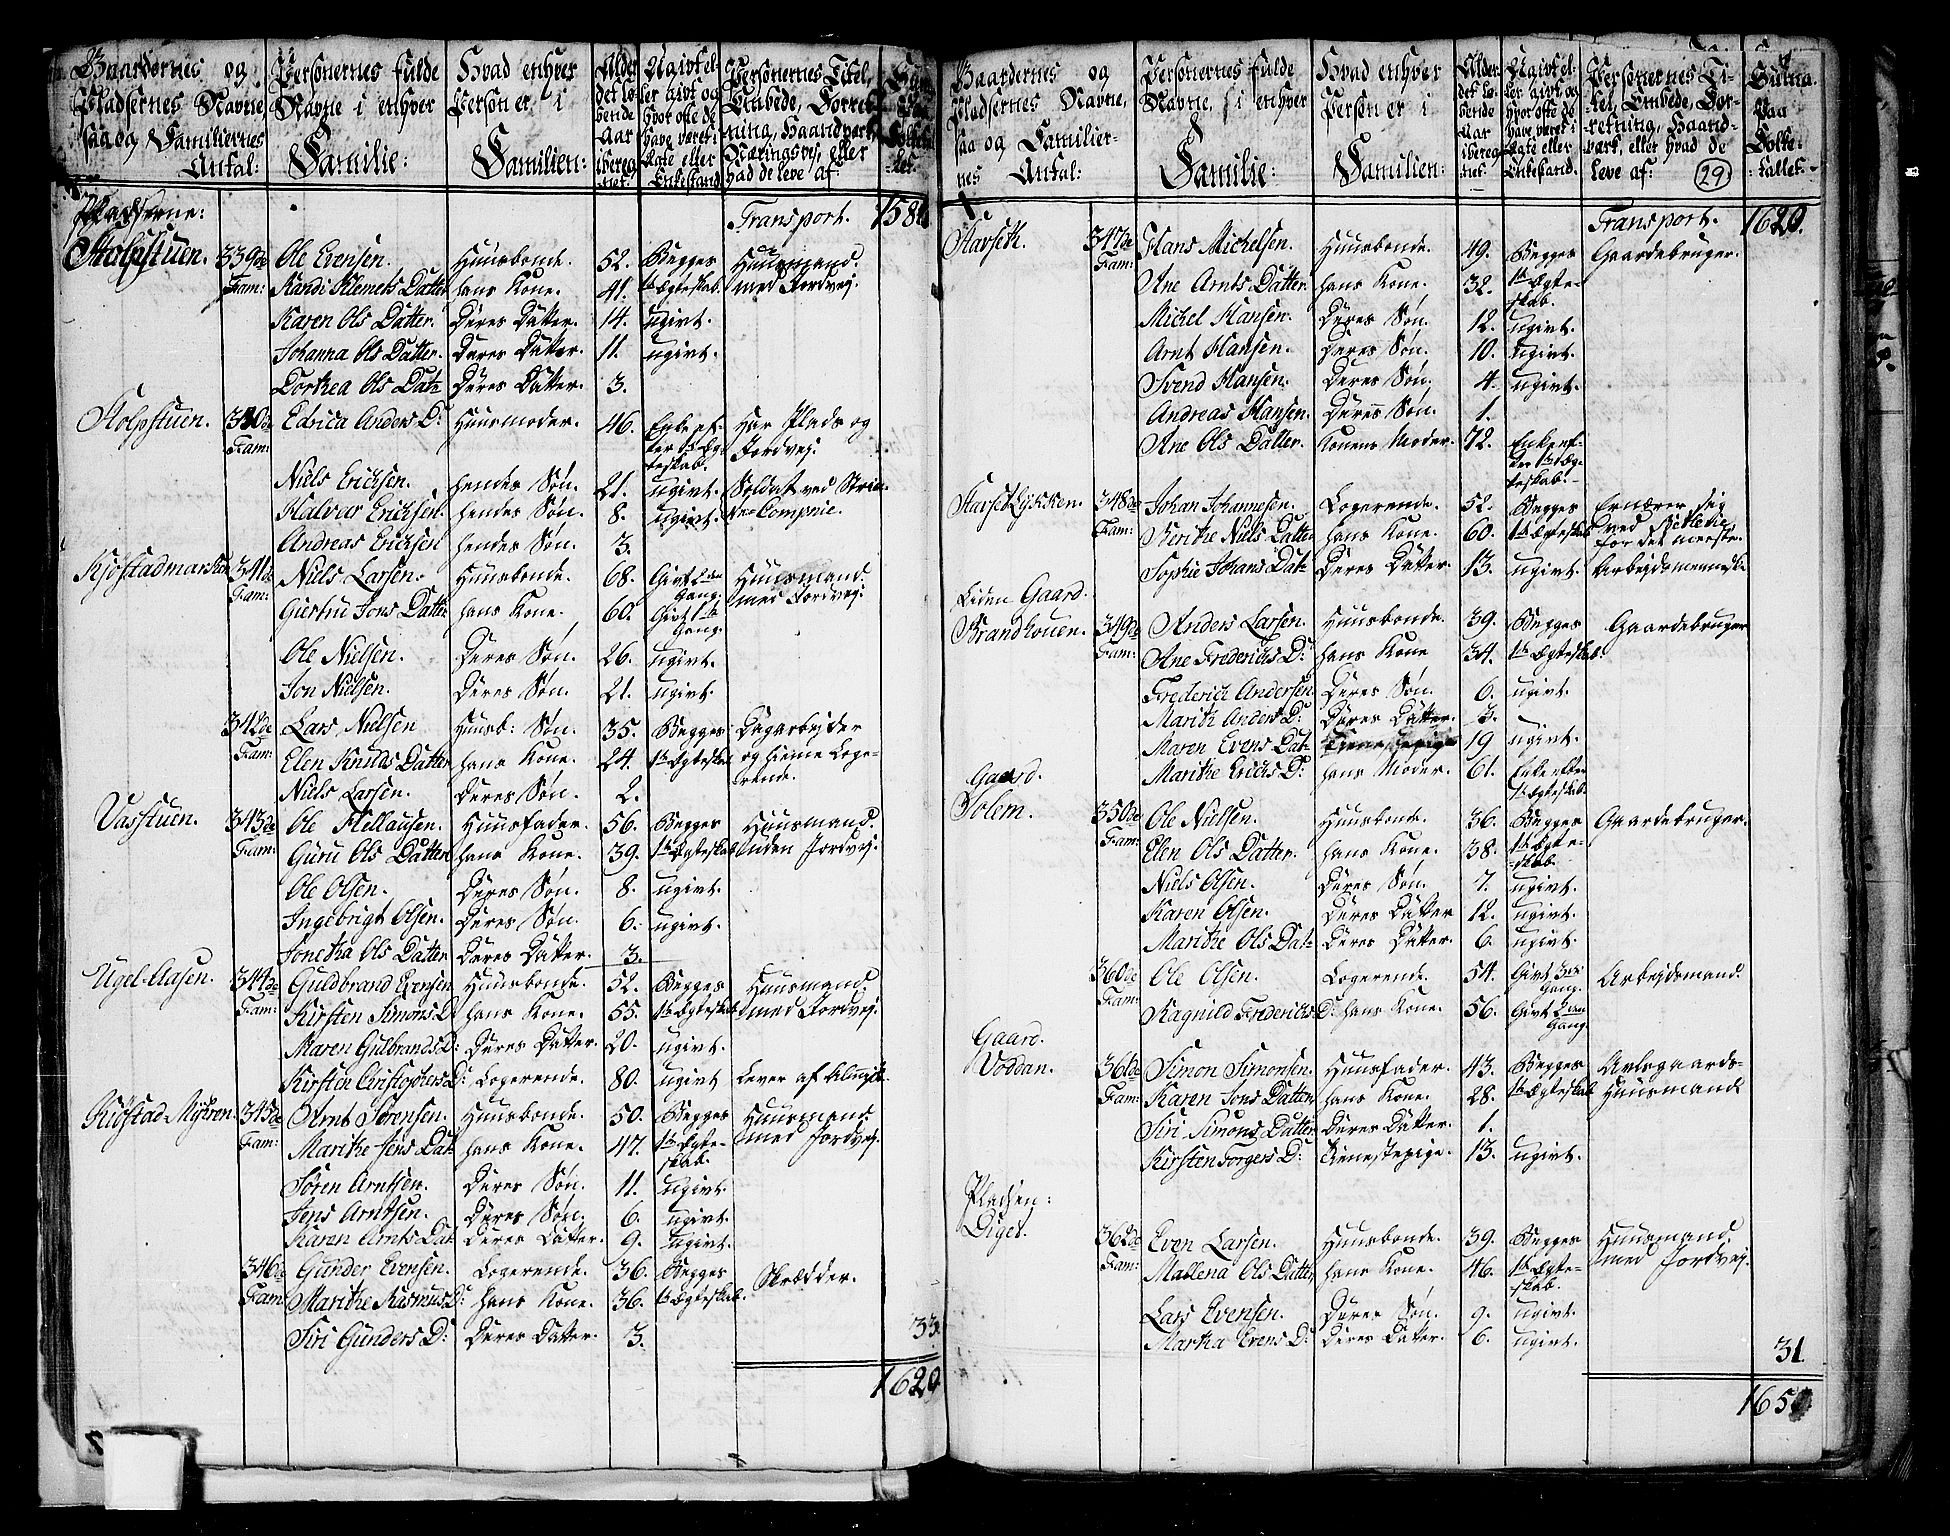 Gaardernes og Pladsernes Navne, saa og Familiernes Antal:
Personernes fulde Navne i enhver Familie:
Hvad enhver Person er i Familien:
Alder det lø-bende Aar ibereg-net.
Ugivt el-ler givt og hvor ofte de have været i Ægte eller Enkestand
Personernes Titel, Embede, Forret-ning, Haandverk, Næringsvej, eller hvad de leve af:
Pladserne:
Transport.
Stolpstuen. 339de Fam: Ole Evensen. Huusbonde. 52. Begges Huusmand
Randi Klemets Datter hans Kone. 41. 1te Ægteskab. med Jordvej.
Karen Ols Datter. Deres Datter. 14. ugivt.
Johanna Ols Datter. Deres Datter. 11. ugivt.
Dorthea Ols Dat: Deres Datter. 3.
Stolpstuen. 340de Fam: Anders D: Huusmoder. 46. Enke ef-ter 1te Æg-teskab. Har Plads og Jordvej.
Niels Erichsen. hendes Søn. 21. ugivt. Soldat ved
Halvar Erichsen. hendes Søn. 8. ugivt.
Andreas Erichsen hendes Søn. 3.
341de Fam: Niels Larsen. Huusbonde. 68. Givt 2den Gang. Huusmand
Giertru Jons Datter hans Kone. 60. Givt 1te Gang. med Jordvej.
Ole Nielsen. Deres Søn. 26. ugivt.
Jon Nielsen. Deres Søn. 21. ugivt.
342de Fam: Lars Nielsen Huusb: Søn. 35. Begges Dagarbejder
Elen Knuds Datter hans Kone. 24. 1te Ægteskab og hieme Loge-rende.
Niels Larsen. Deres Søn. 2.
Vasstuen. 343de Fam: Ole Hellausen. Huusfader. 56. Begges Huusmand
Guru Ols Datter hans Kone. 39. 1te Ægteskab uden Jordvej.
Ole Olsen. Deres Søn. 8. ugivt.
Ingebrigt Olsen. Deres Søn. 6. ugivt.
Jonetha Ols Datter Deres Datter. 3.
Ugel-Aasen. 344de Fam: Guldbrand Evensen Huusbonde. 52. Begges Huusmand
Kirsten Simons D. hans Kone. 55. 1te Ægteskab med Jordvej.
Maren Gulbrands D: Deres Datter. 20. ugivt.
Kirsten Christophers D: Logerende. 80. ugivt Lever af Almisse.
Kiøstad-Myhren. 345de Fam: Arnt Sørensen. Huusbonde. 50. Begges Huusmand
Marithe Jens Dat: hans Kone. 47. 1te Ægte-skab. med Jordvej.
Søren Arntsen. Deres Søn. 11. ugivt.
Jens Arntsen. Deres Søn. 6. ugivt.
Karen Arnts Dat: Deres Datter. 9. ugivt.
346de Fam: Gunder Evensen. Logerende. 36. Begges Skrædder.
Marithe Rasmus D: hans Kone. 36. 1te Ægteskab.
Siri Gunders D: Deres Datter. 3.
33.
1620
Gaardernes og Pladsernes Navne, saa og Familier-nes Antal:
Personernes fulde Navne, i enhver Familie:
Hvad enhver Person er i Familien:
Alder det lø-bende Aar ibereg-net.
Ugivt el-ler givt, og hvor ofte de have været i Ægte eller Enkestand.
Personernes Ti-tel, Embede, For-retning, Haand-verk, eller hvad de leve af:
29
Summa Paa Folke-tallet.
Transport. 1620.
347de Fam: Hans Michelsen. Huusbonde. 49. Begges Gaardebruger.
Ane Arnts Datter. hans Kone. 32. 1te Ægte-skab.
Michel Hansen. Deres Søn. 12. ugivt.
Arnt Hansen. Deres Søn. 10. ugivt.
Svend Hansen. Deres Søn. 4. ugivt.
Andreas Hansen. Deres Søn. 1.
Ane Ols Datter. Konens Moder. 72. Enke ef-ter 1te Æg-teskab.
348de Fam: Johan Johannesen. Logerende. 52. Begges Ernærer sig
Berithe Niels Datter hans Kone. 60. 1te Ægteskab ved Betlerie for det meeste.
Sophie Johans Dat: Deres Datter. 13. ugivt. Arbejdsmennsk:
Liden Gaard.
Brandhouen. 349de Fam: Anders Larsen. Huusbonde. 39. Begges Gaardebruger
Ane Frederichs D: hans Kone 34. 1te Ægteskab.
Frederich Andersen Deres Søn. 6. ugivt.
Marith Anders D: Deres Datter. 3.
Maren Evens Dat: Tienestepige 19 ugivt.
Marithe Erichs D: hans Moder. 61. Enke efter 1te Ægteskab.
Gaard.
Solem. 350de Fam: Ole Nielsen. Huusbonde. 36. Begges Gaardebruger.
Elen Ols Datter. hans Kone. 38. 1te Ægte-skab.
Niels Olsen. Deres Søn. 7. ugivt.
Karen Olsen. Deres Datter 12. ugivt.
Marithe Ols Dat: Deres Datter. 6. ugivt.
360de Fam: Ole Olsen. Logerende. 54. Givt 3die Gang. Arbejdsmand.
Ragnild Frederichs D: hans Kone. 56. Givt 2den Gang.
Gaard.
Voddan. 361de Fam: Simon Simonsen. Huusfader. 43. Begges Avlsgaards-
Karen Jons Datter hans Kone. 28. 1te Ægteskab Huusmand
Siri Simons Datter Deres Datter. 1.
Kirsten Torgers D: Tienestepige. 13. ugivt.
Pladsen:
Diget. 362de Fam: Even Larsen. Huusbonde. 39. Begges Huusmand
Mallena Ols Datter hans Kone. 46. 1te Ægte-skab. med Jordvej.
Lars Evensen. Deres Søn. 9. ugivt.
Martha Evens D: Deres Datter. 6. ugivt.
31